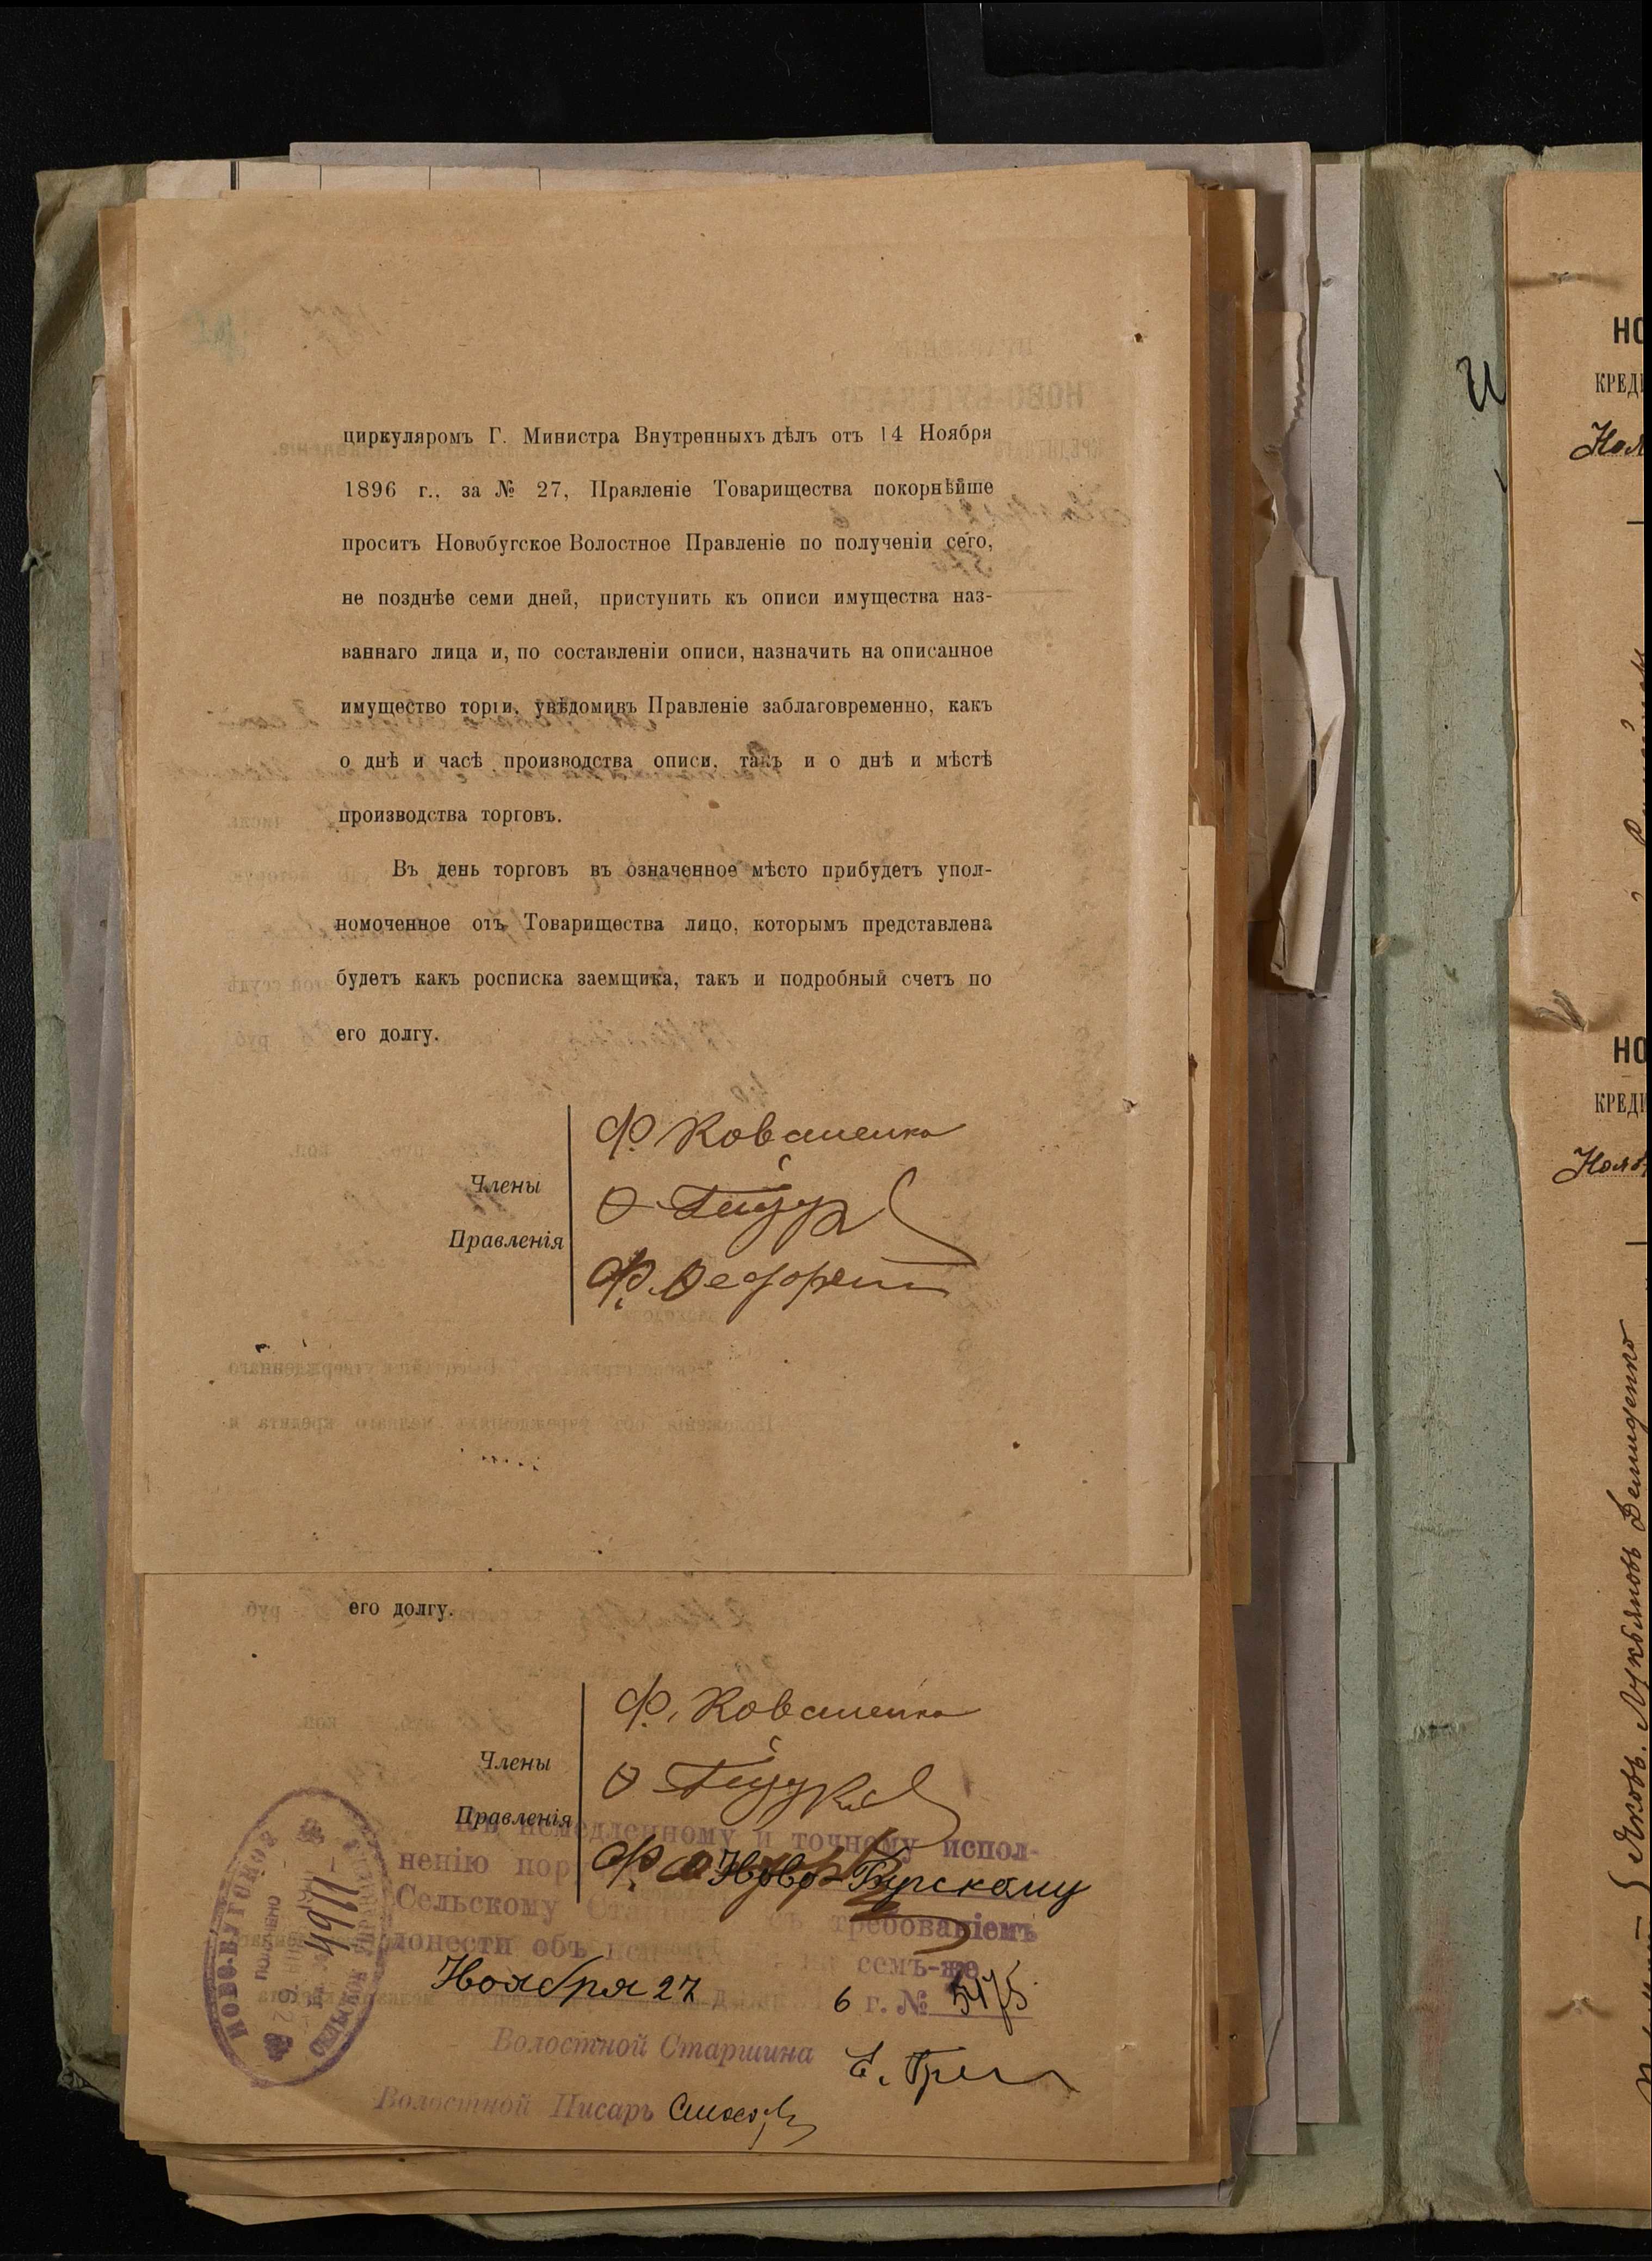 циркуляромъ Г. Министра Внутренныхъ дѣлъ отъ 14 Ноября
1896 г., за № 27, Правленіе Товарищества покорнѣйше
проситъ Новобугское Волостное Правленіе по полученіи сего,
не позднѣе семи дней, приступить къ описи имущества наз-
ваннаго лица и, по составленіи описи, назначить на описанное
имущество торги, увѣдомивъ Правленіе заблаговременно, какъ
о днѣ и часѣ производства описи, такъ и о днѣ и мѣстѣ
производства торговъ.
Въ день торговъ въ означенное мѣсто прибудетъ упол-
номоченное отъ Товарищества лицо, которымъ представлена
будетъ какъ росписка заемщика, такъ и подробный счетъ по
его долгу.
Члены
Правленія
Ф. Коваленко
его долгу.
Члены
Правленія
Ф. Коваленко
немедленному и точному испол-
ненію пор
Ново-Бугскому
Сельскому требованіемъ
донести объ семъ-же
Ноября 27 6 г. № 5475
Волостной Старшина
Волостной Писарь
НОВО-БУГСКОЕ
ПОЛУЧЕНО
4911
СЕЛЬСКОЕ
НО
КРЕДИ
Ноя
НО
КРЕДИ
Нояб
Яковъ Лукьяновъ Демиденко